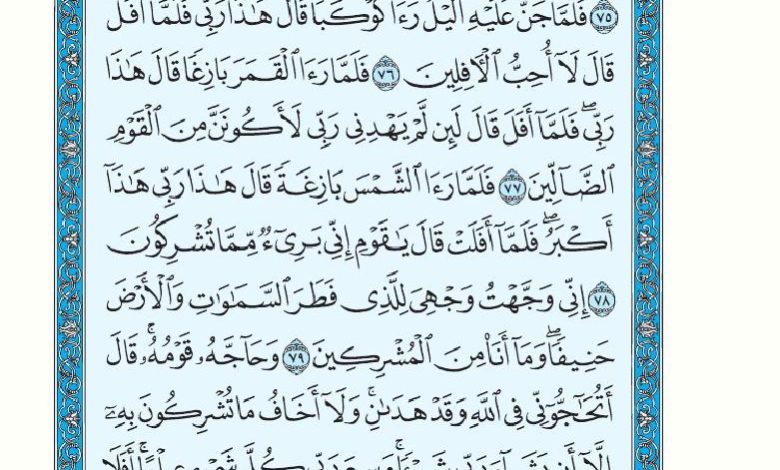 ٧٥ فَلَمَّا جَنَّ عَلَيْهِ ٱلَّيْلُ رَءَا كَوْكَبًا قَالَ هَٰذَا رَبِّى فَلَمَّآ أَفَلَ
قَالَ لَآ أُحِبُّ ٱلْأَفِلِينَ ٧٦ فَلَمَّا رَءَا ٱلْقَمَرَ بَازِغًا قَالَ هَٰذَا
رَبِّى ۖ فَلَمَّآ أَفَلَ قَالَ لَئِن لَّمْ يَهْدِنِى رَبِّى لَأَكُونَنَّ مِنَ ٱلْقَوْمِ
ٱلضَّآلِّينَ ٧٧ فَلَمَّا رَءَا ٱلشَّمْسَ بَازِغَةً قَالَ هَٰذَا رَبِّى هَٰذَآ
أَكْبَرُ ۖ فَلَمَّآ أَفَلَتْ قَالَ يَٰقَوْمِ إِنِّى بَرِىٓءٌ مِّمَّا تُشْرِكُونَ
٧٨ إِنِّى وَجَّهْتُ وَجْهِىَ لِلَّذِى فَطَرَ ٱلسَّمَٰوَٰتِ وَٱلْأَرْضَ
حَنِيفًا ۖ وَمَآ أَنَا۠ مِنَ ٱلْمُشْرِكِينَ ٧٩ وَحَآجَّهُۥ قَوْمُهُۥ ۚ قَالَ
أَتُحَٰٓجُّوٓنِّى فِى ٱللَّهِ وَقَدْ هَدَىٰنِ ۚ وَلَآ أَخَافُ مَا تُشْرِكُونَ بِهِۦٓ
إِلَّآ أَن يَشَآءَ رَبِّى شَيْـًٔا ۗ وَسِعَ رَبِّى كُلَّ شَىْءٍ عِلْمًا ۗ أَفَلَا